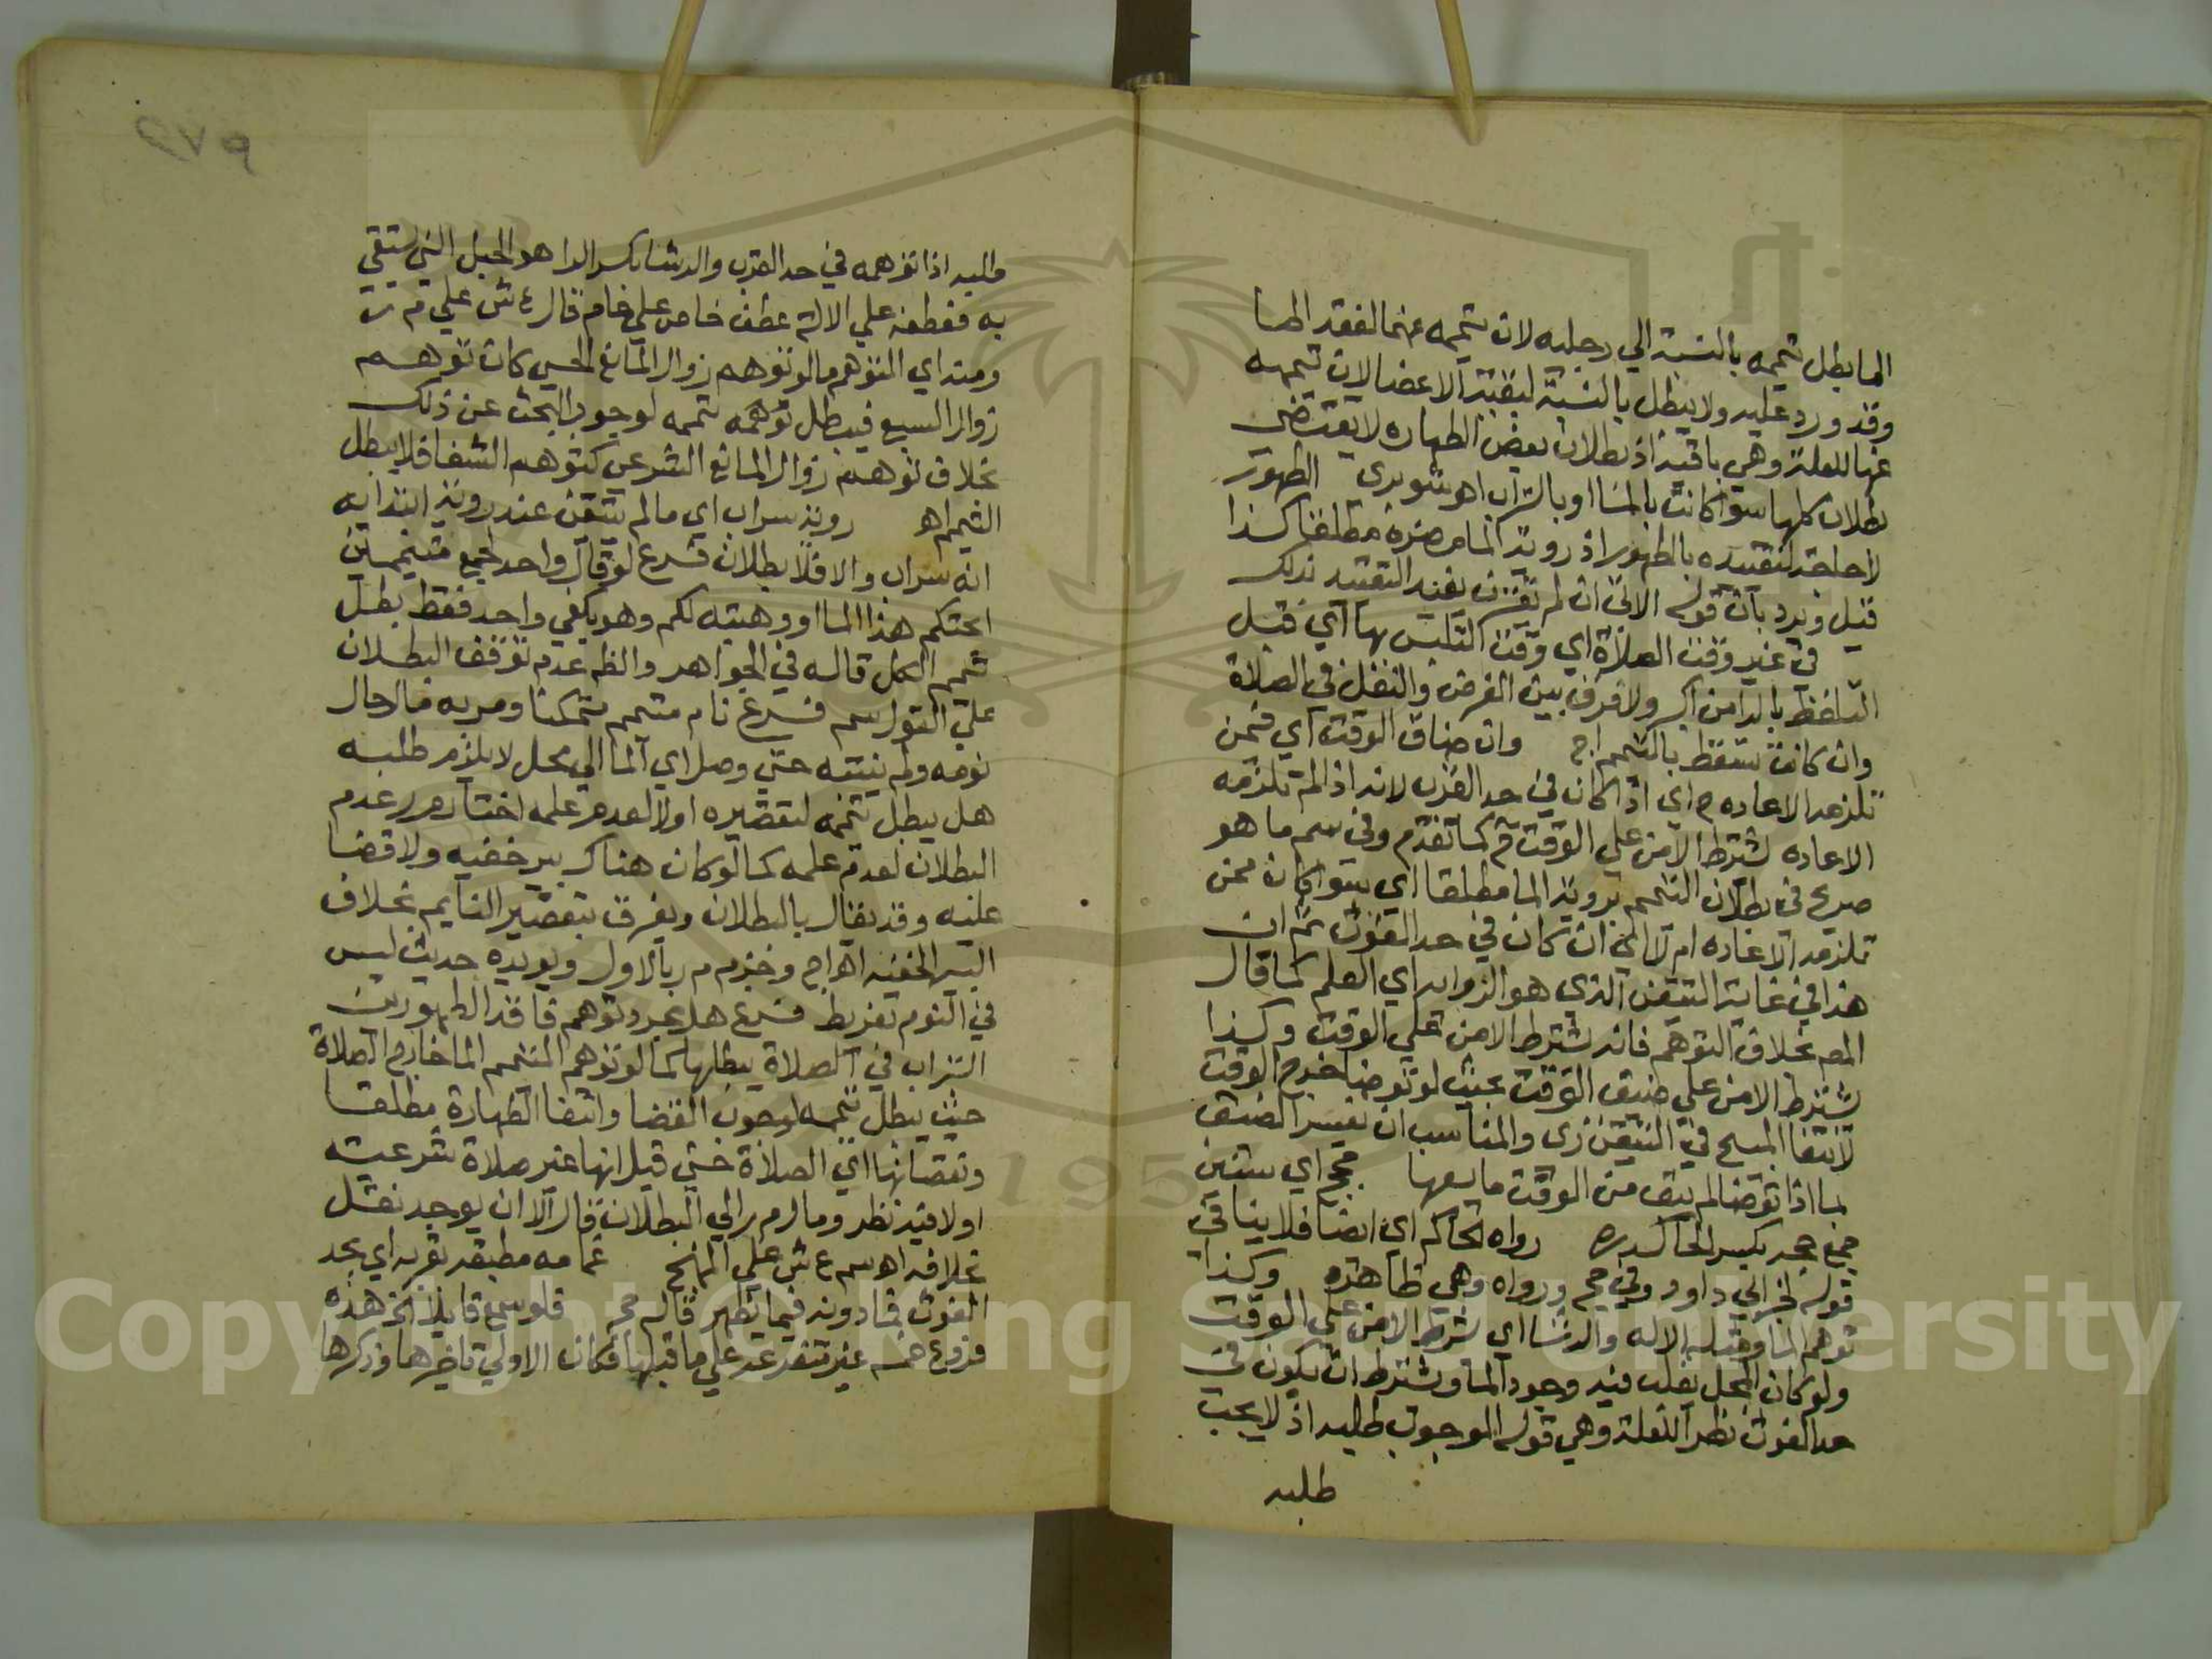 الما بطل تيممه بالنسبة الي رجليه لان تيممه عنهما لفقد الما
وقد ورد عليه ولا يبطل بالنسبة لبقية الاعضا لان تيممه
عنها للعلة وهي باقية اذ بطلان بعض الطهاره لا يقتضي
بطلان كلها سوا كانت بالما او بالتراب اهـ شوبري الطهور
لا حاجة لتقييده بالطهور اذ روية الما مضرة مطلقا كذا
قيل ويرد بان قوله الاتي ان لم تقترن يفيد التقييد بذلك
في غير وقت الصلاة اي وقت التلبس بها اي قبل
التلفظ بالرا من اكبر ولا فرق بين الفرض والنفل في الصلاة
وان كانت تسقط بالتيمم اج وان ضاق الوقت اي فمن
تلزمه الاعاده م اي اذا كان في حد القرب لانه اذا لم تلزمه
الاعاده يشترط الامن علي الوقت م كما تقدم وفي سم ما هو
صريح في بطلان التيمم بروية الما مطلقا اي سوا كان ممن
تلزمه الاعاده ام لا اي ان كان في حد الغوث ثم ان
هذا في غاية التيقن الذي هو الزوال اي العلم كما قال
المص بخلاف التوهم فانه يشترط الامن علي الوقت وكذا
يشترط الامن علي ضيق الوقت بحيث لو توضا خرج الوقت
لانتفا المبيح في التيقن زي والمناسب ان يفسر الضيق
بما اذا توضا لم يبق من الوقت ما يسعها حجج اي سنين
جمع حجه بكسر الحا رواه الحاكم اي ايضا فلا ينافي
قوله لخبر ابي داود وفي حج ورواه وهي ظاهره وكذا
توهم الما وقبله الاله والرشا اي شرط الامن علي الوقت
ولو كان المحل يغلب فيه وجود الما ويشترط ان يكون في
حد الغوث نظر اللعلة وهي قوله لوجوب طلبه اذ لا يجب
طلبه
٢٧٩
طلبه اذا توهمه في حد القرب والرشا بكسر الرا هو الحبل الذي يستقي
به فعطفه علي الالة عطف خاص علي عام قال ع ش علي م ر
ومنه اي التوهم ما لو توهم زوال المانع الحسي كان توهم
زوال السبع فيبطل توهمه تيممه لوجوب البحث عن ذلك
بخلاف توهم زوال المانع الشرعي كتوهم الشفا فلا يبطل
التيمم اهـ روية سراب اي ما لم يتيقن عند روية ابتدايه
انه سراب والا فلا بطلان فرع لو قال واحد لجمع متيممين
ابحتكم هذا الما او وهبته لكم وهو يكفي واحد فقط بطل
تيمم الكل قاله في الجواهر والظ عدم توقف البطلان
علي القبول سم فرع نام متيمم متمكنا ومر به ما حال
نومه ولم ينتبه حتي وصل اي الما الي محل لا يلزم طلبه
هل يبطل تيممه لتقصيره او لا لعدم علمه اختار م ر عدم
البطلان لعدم علمه كما لو كان هناك بير خفيه ولا قضا
عليه وقد يقال بالبطلان ويفرق بتقصير النايم بخلاف
البير الخفية اهـ اج وجزم م ر بالاول ويويده حديث ليس
في النوم تفريط فرع هل مجرد توهم فاقد الطهورين
التراب في الصلاة يبطلها كما لو توهم المتيمم الما خارج الصلاة
حيث يبطل تيممه لوجوب القضا وانتفا الطهارة مطلقا
ونقصانها اي الصلاة حتي قيل انها غير صلاة شرعية
او لا فيه نظر ومال م ر الي البطلان قال الا ان يوجد نقل
بخلافه اهـ سم ع ش علي المنهج غمامة مطبقة بقربه اي بحد
الغوث فما دونه فيما يظهر قاله حج فلو سمع قايلا الخ هذه
فروع خمسه غير متفرعه علي ما قبلها فكان الاولي تاخيرها وذكرها
Copyright © King Saud University